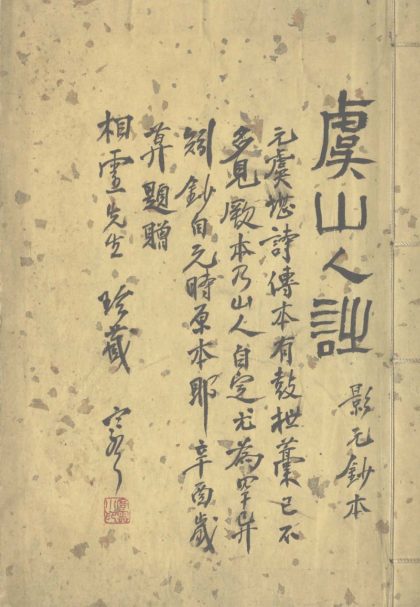 虞山人詩
影元鈔本
元虞堪詩傳本有鼓枻藁已不
多見厥本乃山人自定尤為罕
矧鈔自元時原本耶辛酉歲
莫題贈
相先生珍藏